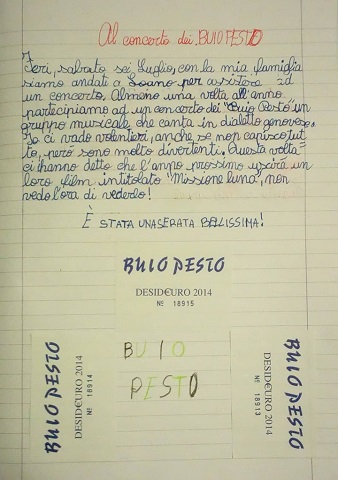 Al concerto dei BUIO PESTO
Ieri, sabato sei Luglio, con la mia famiglia
siamo andati a Loano per assistere ad
un concerto. Almeno una volta all'anno
partecipiamo ad un concerto dei "Buio Pesto" un
gruppo musicale che canta in dialetto genovese.
Io ci vado volentieri, anche se non capisco tut
to, però sono molto divertenti. Questa volta
ci hanno detto che l'anno prossimo uscirà un
loro film intitolato "Missione luna", non
vedo l'ora di vederlo!
È STATA UNA SERATA BELLISSIMA!
BUIO PESTO
DESID€URO 2014
Nº 18915
BUIO PESTO
DESID€URO 2014
Nº 18914
BUIO
PESTO
BUIO PESTO
DESID€URO 2014
Nº 18913